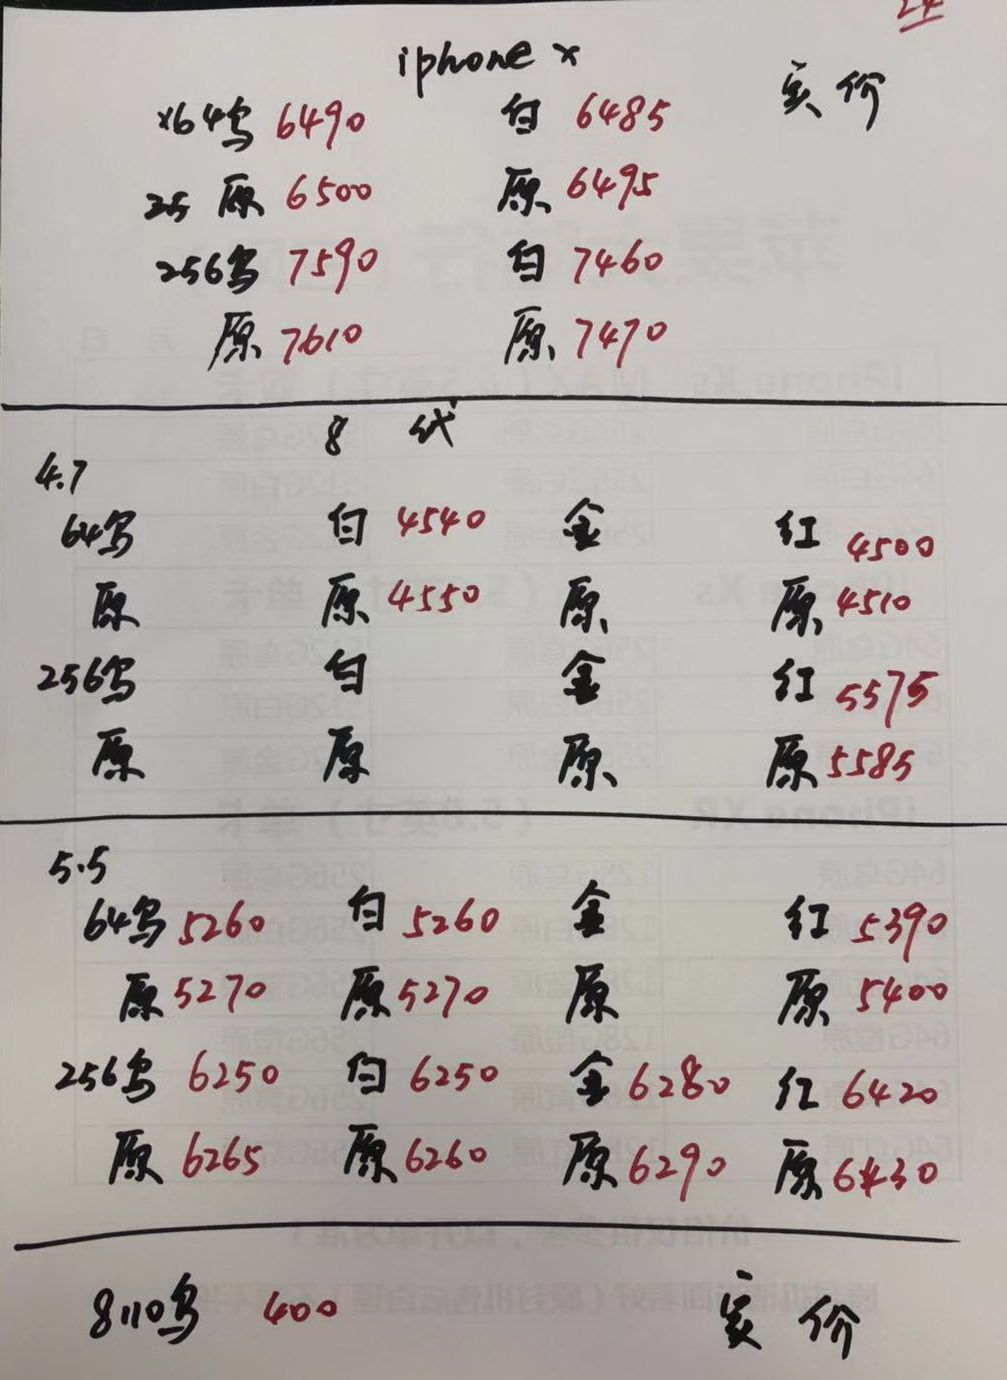 24
iphone x
实价
x64乌 6490 白 6485
25 原 6500 原 6495
256乌 7590 白 7460
原 7610 原 7470
8 代
4.7
64乌 白 4540 金 红 4500
原 原 4550 原 原 4510
256乌 白 金 红 5575
原 原 原 原 5585
5.5
64乌 5260 白 5260 金 红 5390
原 5270 原 5270 原 原 5400
256乌 6250 白 6250 金 6280 红 6420
原 6265 原 6260 原 6290 原 6430
8110乌 400 实价